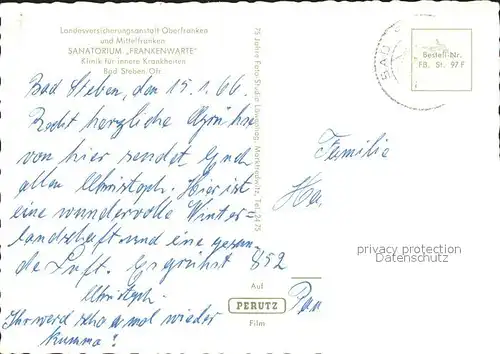 Landesversicherungsanstalt Oberfranken
und Mittelfranken
SANATORIUM „FRANKENWARTE"
Klinik für innere Krankheiten
Bad Steben/Ofr.
Bad Steben, den 15.1.66
Recht herzliche Grüße
von hier sendet Euch
allen Christoph. Hier ist
eine wundervolle Winter=
landschaft und eine gesun-
de Luft. Gegrüßt
Christoph.
Ihr werd scho a mol wieder
kumma!
75 Jahre Foto-Studio Marktredwitz, Tel. 2475
BAD S
Bestell-Nr.
FB. St. 97 F
Familie
Ha
852
Auf
PERUTZ
Film
privacy protection
Datenschutz